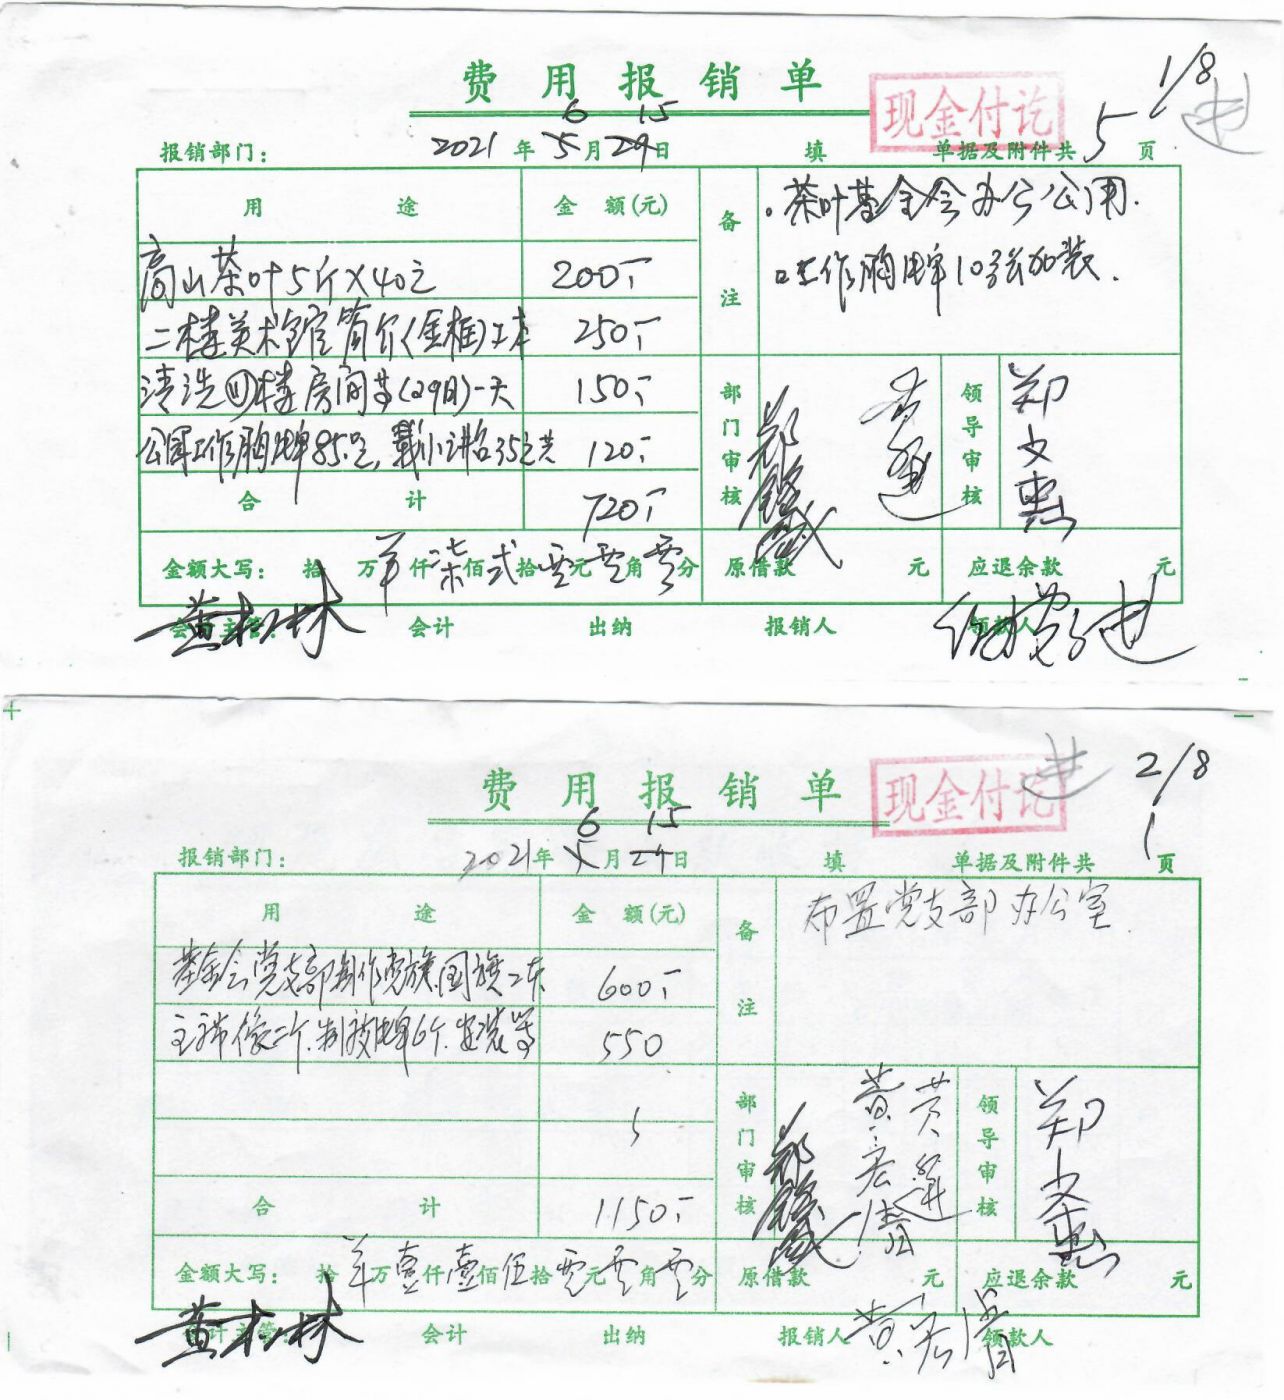 费用报销单
现金付讫
1/8
6 15
报销部门: 2021年5月29日 填 单据及附件共5页
用途 金额(元) 备注
茶叶基金会办公公用.
工作胸牌10张加装.
高山茶叶5斤X40元 200.-
二楼美术馆简介(金框)工本 250.-
清洗四楼房间等(29日)一天 150.-
120.-
合计 720.-
部门审核 领导审核 郑文惠
金额大写: 拾万羊仟柒佰弍拾零元零角零分 原借款 元 应退余款 元
会计主管: 黄松林 会计 出纳 报销人 领款人
费用报销单
现金付讫
2/8
6 15
报销部门: 2021年5月29日 填 单据及附件共1页
用途 金额(元) 备注
布置党支部办公室
基金会党支部制作党旗国旗工本 600.-
主席像二个.制放牌6个.安装等 550
合计 1150.-
部门审核 领导审核 郑文惠
金额大写: 拾羊万壹仟壹佰伍拾零元零角零分 原借款 元 应退余款 元
会计主管: 黄松林 会计 出纳 报销人 领款人